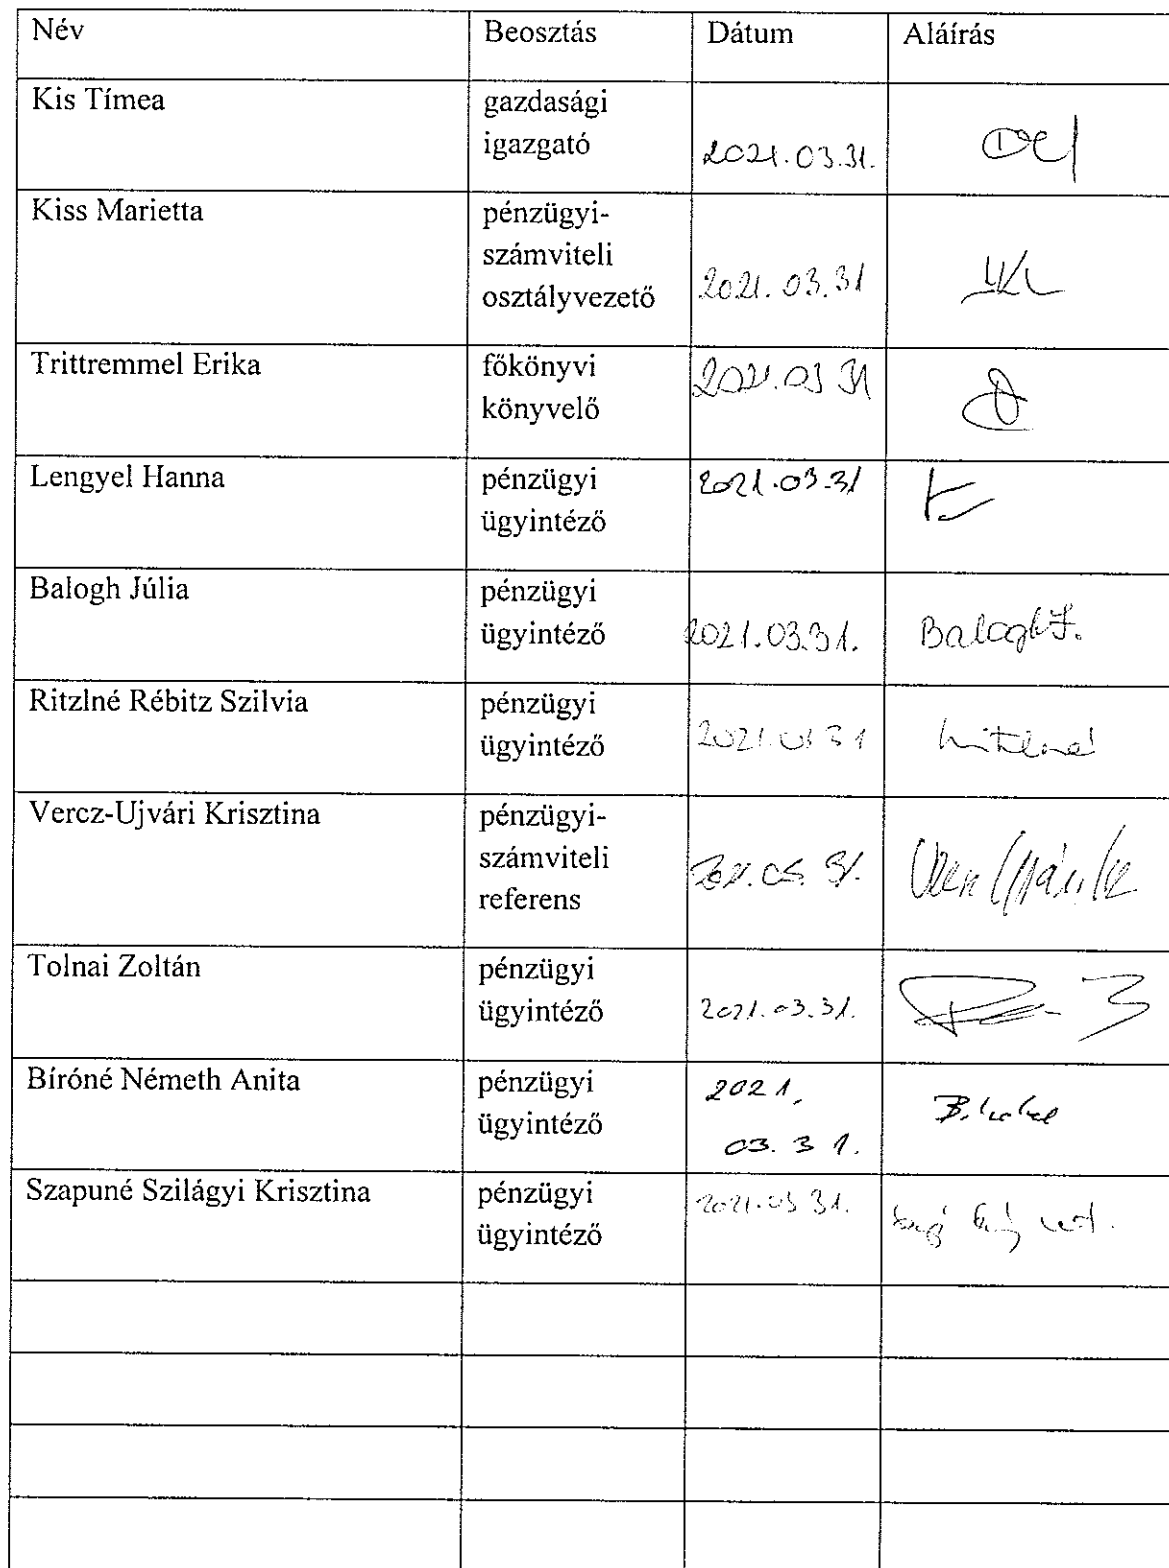 Név Beosztás Dátum Aláírás
Kis Tímea gazdasági
igazgató 2021.03.31.
Kiss Marietta pénzügyi-
számviteli
osztályvezető 2021.03.31
Trittremmel Erika főkönyvi 2021.03 31
könyvelő
Lengyel Hanna pénzügyi 2021.03.31
ügyintéző
Balogh Júlia pénzügyi
ügyintéző 2021.03.31. Balogh J.
Ritzlné Rébitz Szilvia pénzügyi
ügyintéző 2021.03 31
Vercz-Ujvári Krisztina pénzügyi-
számviteli
referens
Tolnai Zoltán pénzügyi
ügyintéző 2021.03.31.
Bíróné Németh Anita pénzügyi 2021.
ügyintéző 03. 31.
Szapuné Szilágyi Krisztina pénzügyi 2021.03 31.
ügyintéző